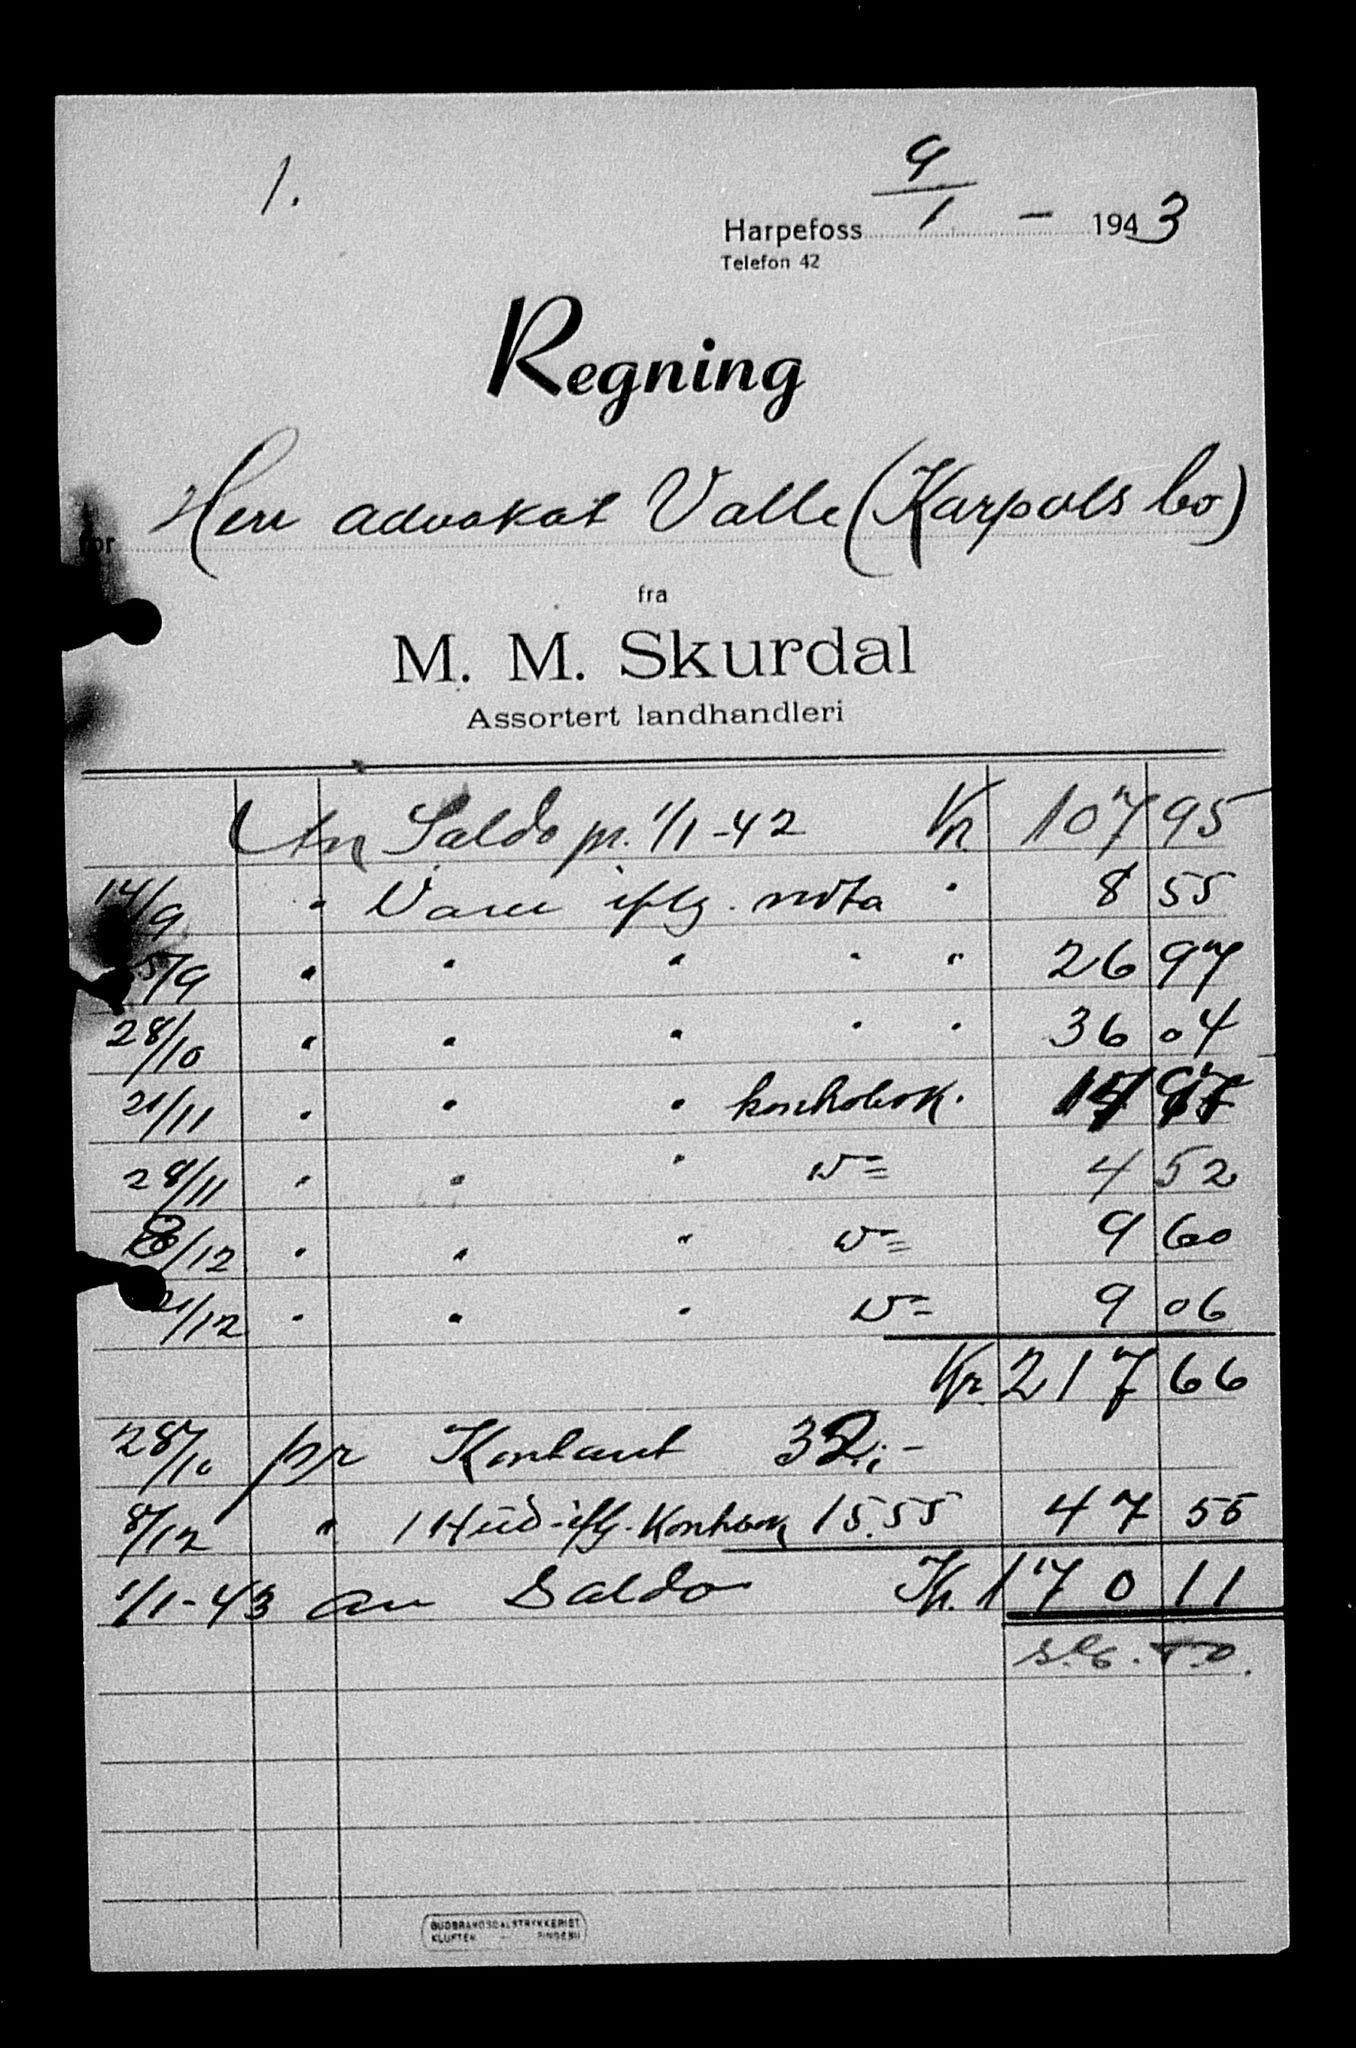 1.
9/1 -
Harpefoss 1943
Telefon 42
Regning
for Herr advokat Valle (Karpols bo)
fra
M. M. Skurdal
Assortert landhandleri
An Saldo pr. 1/1-42 Kr. 107 95
14/9 " Varer iflg. nota " 8 55
5/9 " " " " " 26 97
28/10 " " " " " 36 04
21/11 " " " kontrabok. 14 97
28/11 " " " do = 4 52
8/12 " " " do = 9 60
21/12 " " " do = 9 06
Kr. 217 66
28/10 pr Kontant 32,-
8/12 " 1 Hud iflg. Kontrabok 15.55 47 55
1/1-43 an Saldo Kr. 170 11
GUDBRANDSDALSTRYKKERIET
KLUFTEN - RINGEBU